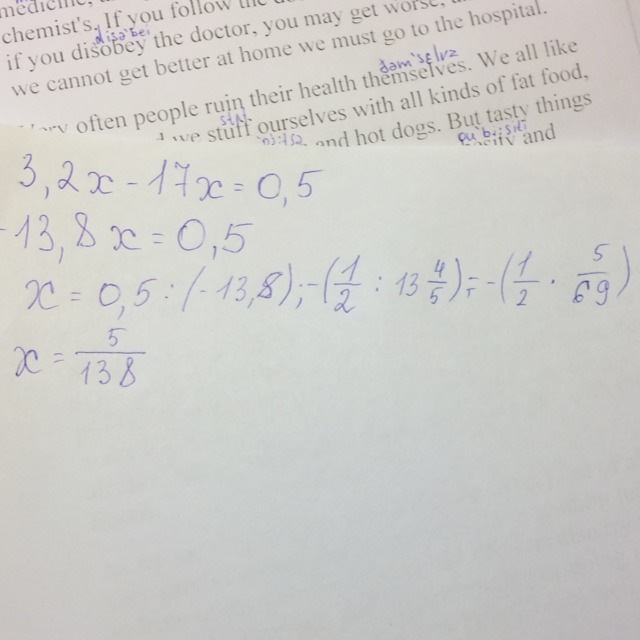 medicine,
chemist's. If you follow the
disə'bei
if you disobey the doctor, you may get worse,
we cannot get better at home we must go to the hospital.
ðəm'selvz
often people ruin their health themselves. We all like
we stuff ourselves with all kinds of fat food,
and hot dogs. But tasty things
and
3,2x - 17x = 0,5
-13,8x = 0,5
x = 0,5 : (-13,8) = -(1/2 : 13 4/5) = -(1/2 · 5/69)
x = 5/138